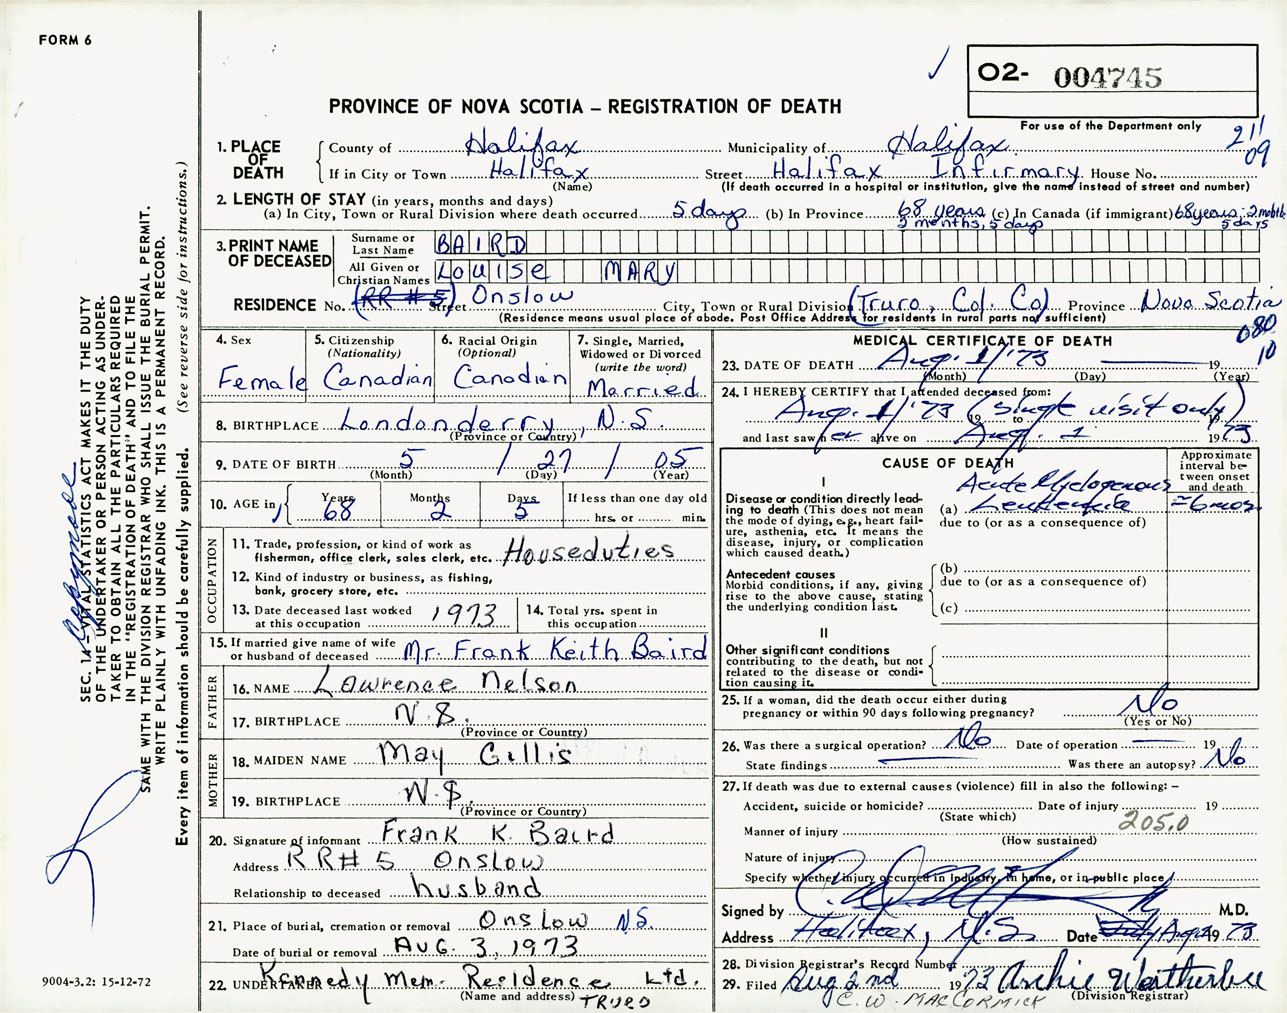 FORM 6
O2- 004745
PROVINCE OF NOVA SCOTIA – REGISTRATION OF DEATH
For use of the Department only
211
09
1. PLACE OF DEATH
County of Halifax Municipality of Halifax
If in City or Town Halifax Street Halifax Infirmary House No.
(Name) (If death occurred in a hospital or institution, give the name instead of street and number)
2. LENGTH OF STAY (in years, months and days)
(a) In City, Town or Rural Division where death occurred 5 days (b) In Province 68 years (c) In Canada (if immigrant) 68 years, 2 months
2 months, 5 days 5 days
3. PRINT NAME OF DECEASED
Surname or Last Name BAIRD
All Given or Christian Names LOUISE MARY
RESIDENCE No. (RR # 5) Street Onslow City, Town or Rural Division (Truro, Col. Co) Province Nova Scotia
(Residence means usual place of abode. Post Office Address for residents in rural parts not sufficient)
080
10
4. Sex
Female
5. Citizenship (Nationality)
Canadian
6. Racial Origin (Optional)
Canadian
7. Single, Married, Widowed or Divorced (write the word)
Married
8. BIRTHPLACE Londonderry, N.S.
(Province or Country)
9. DATE OF BIRTH 5 / 27 / 05
(Month) (Day) (Year)
10. AGE in Years Months Days If less than one day old
68 2 5 hrs. or min.
OCCUPATION
11. Trade, profession, or kind of work as fisherman, office clerk, sales clerk, etc. Houseduties
12. Kind of industry or business, as fishing, bank, grocery store, etc.
13. Date deceased last worked at this occupation 1973
14. Total yrs. spent in this occupation
15. If married give name of wife or husband of deceased Mr. Frank Keith Baird
FATHER
16. NAME Lawrence Nelson
17. BIRTHPLACE N.S.
(Province or Country)
MOTHER
18. MAIDEN NAME May Gillis
19. BIRTHPLACE N.S.
(Province or Country)
20. Signature of informant Frank K. Baird
Address RR# 5 Onslow
Relationship to deceased husband
21. Place of burial, cremation or removal Onslow N.S.
Date of burial or removal AUG. 3, 1973
22. UNDERTAKER Kennedy Mem. Residence Ltd.
(Name and address) TRURO
MEDICAL CERTIFICATE OF DEATH
23. DATE OF DEATH Aug. 1/'73 19
(Month) (Day) (Year)
24. I HEREBY CERTIFY that I attended deceased from:
Aug. 1/'73 19 to (single visit only) 19
and last saw her alive on Aug. 1 1973
CAUSE OF DEATH
Approximate interval between onset and death
I
Disease or condition directly leading to death (This does not mean the mode of dying, e.g., heart failure, asthenia, etc. It means the disease, injury, or complication which caused death.)
Acute Myelogenous
(a) Leukemia ≈ 6 mos.
due to (or as a consequence of)
Antecedent causes
Morbid conditions, if any, giving rise to the above cause, stating the underlying condition last.
(b)
due to (or as a consequence of)
(c)
II
Other significant conditions
contributing to the death, but not related to the disease or condition causing it.
25. If a woman, did the death occur either during pregnancy or within 90 days following pregnancy? No
(Yes or No)
26. Was there a surgical operation? No Date of operation 19
State findings Was there an autopsy? No
27. If death was due to external causes (violence) fill in also the following: –
Accident, suicide or homicide? Date of injury 19
(State which) 205.0
Manner of injury
(How sustained)
Nature of injury
Specify whether injury occurred in industry, in home, or in public place
Signed by M.D.
Address Halifax, N.S. Date Aug 2 1973
28. Division Registrar's Record Number
29. Filed Aug 2nd 1973 Archie Weatherbee
C. W. MACCORMICK (Division Registrar)
SEC. 14 – VITAL STATISTICS ACT MAKES IT THE DUTY
OF THE UNDERTAKER OR PERSON ACTING AS UNDER-
TAKER TO OBTAIN ALL THE PARTICULARS REQUIRED
IN THE "REGISTRATION OF DEATH" AND TO FILE THE
SAME WITH THE DIVISION REGISTRAR WHO SHALL ISSUE THE BURIAL PERMIT.
WRITE PLAINLY WITH UNFADING INK. THIS IS A PERMANENT RECORD.
Every item of information should be carefully supplied. (See reverse side for instructions.)
9004-3.2: 15-12-72